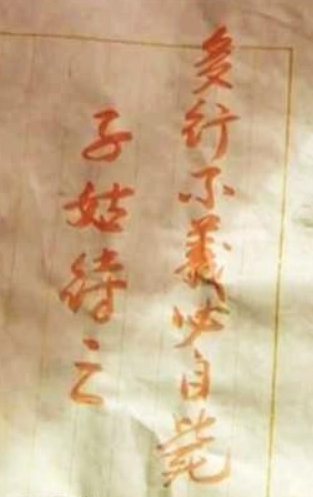 多行不義必自毙
子姑待之